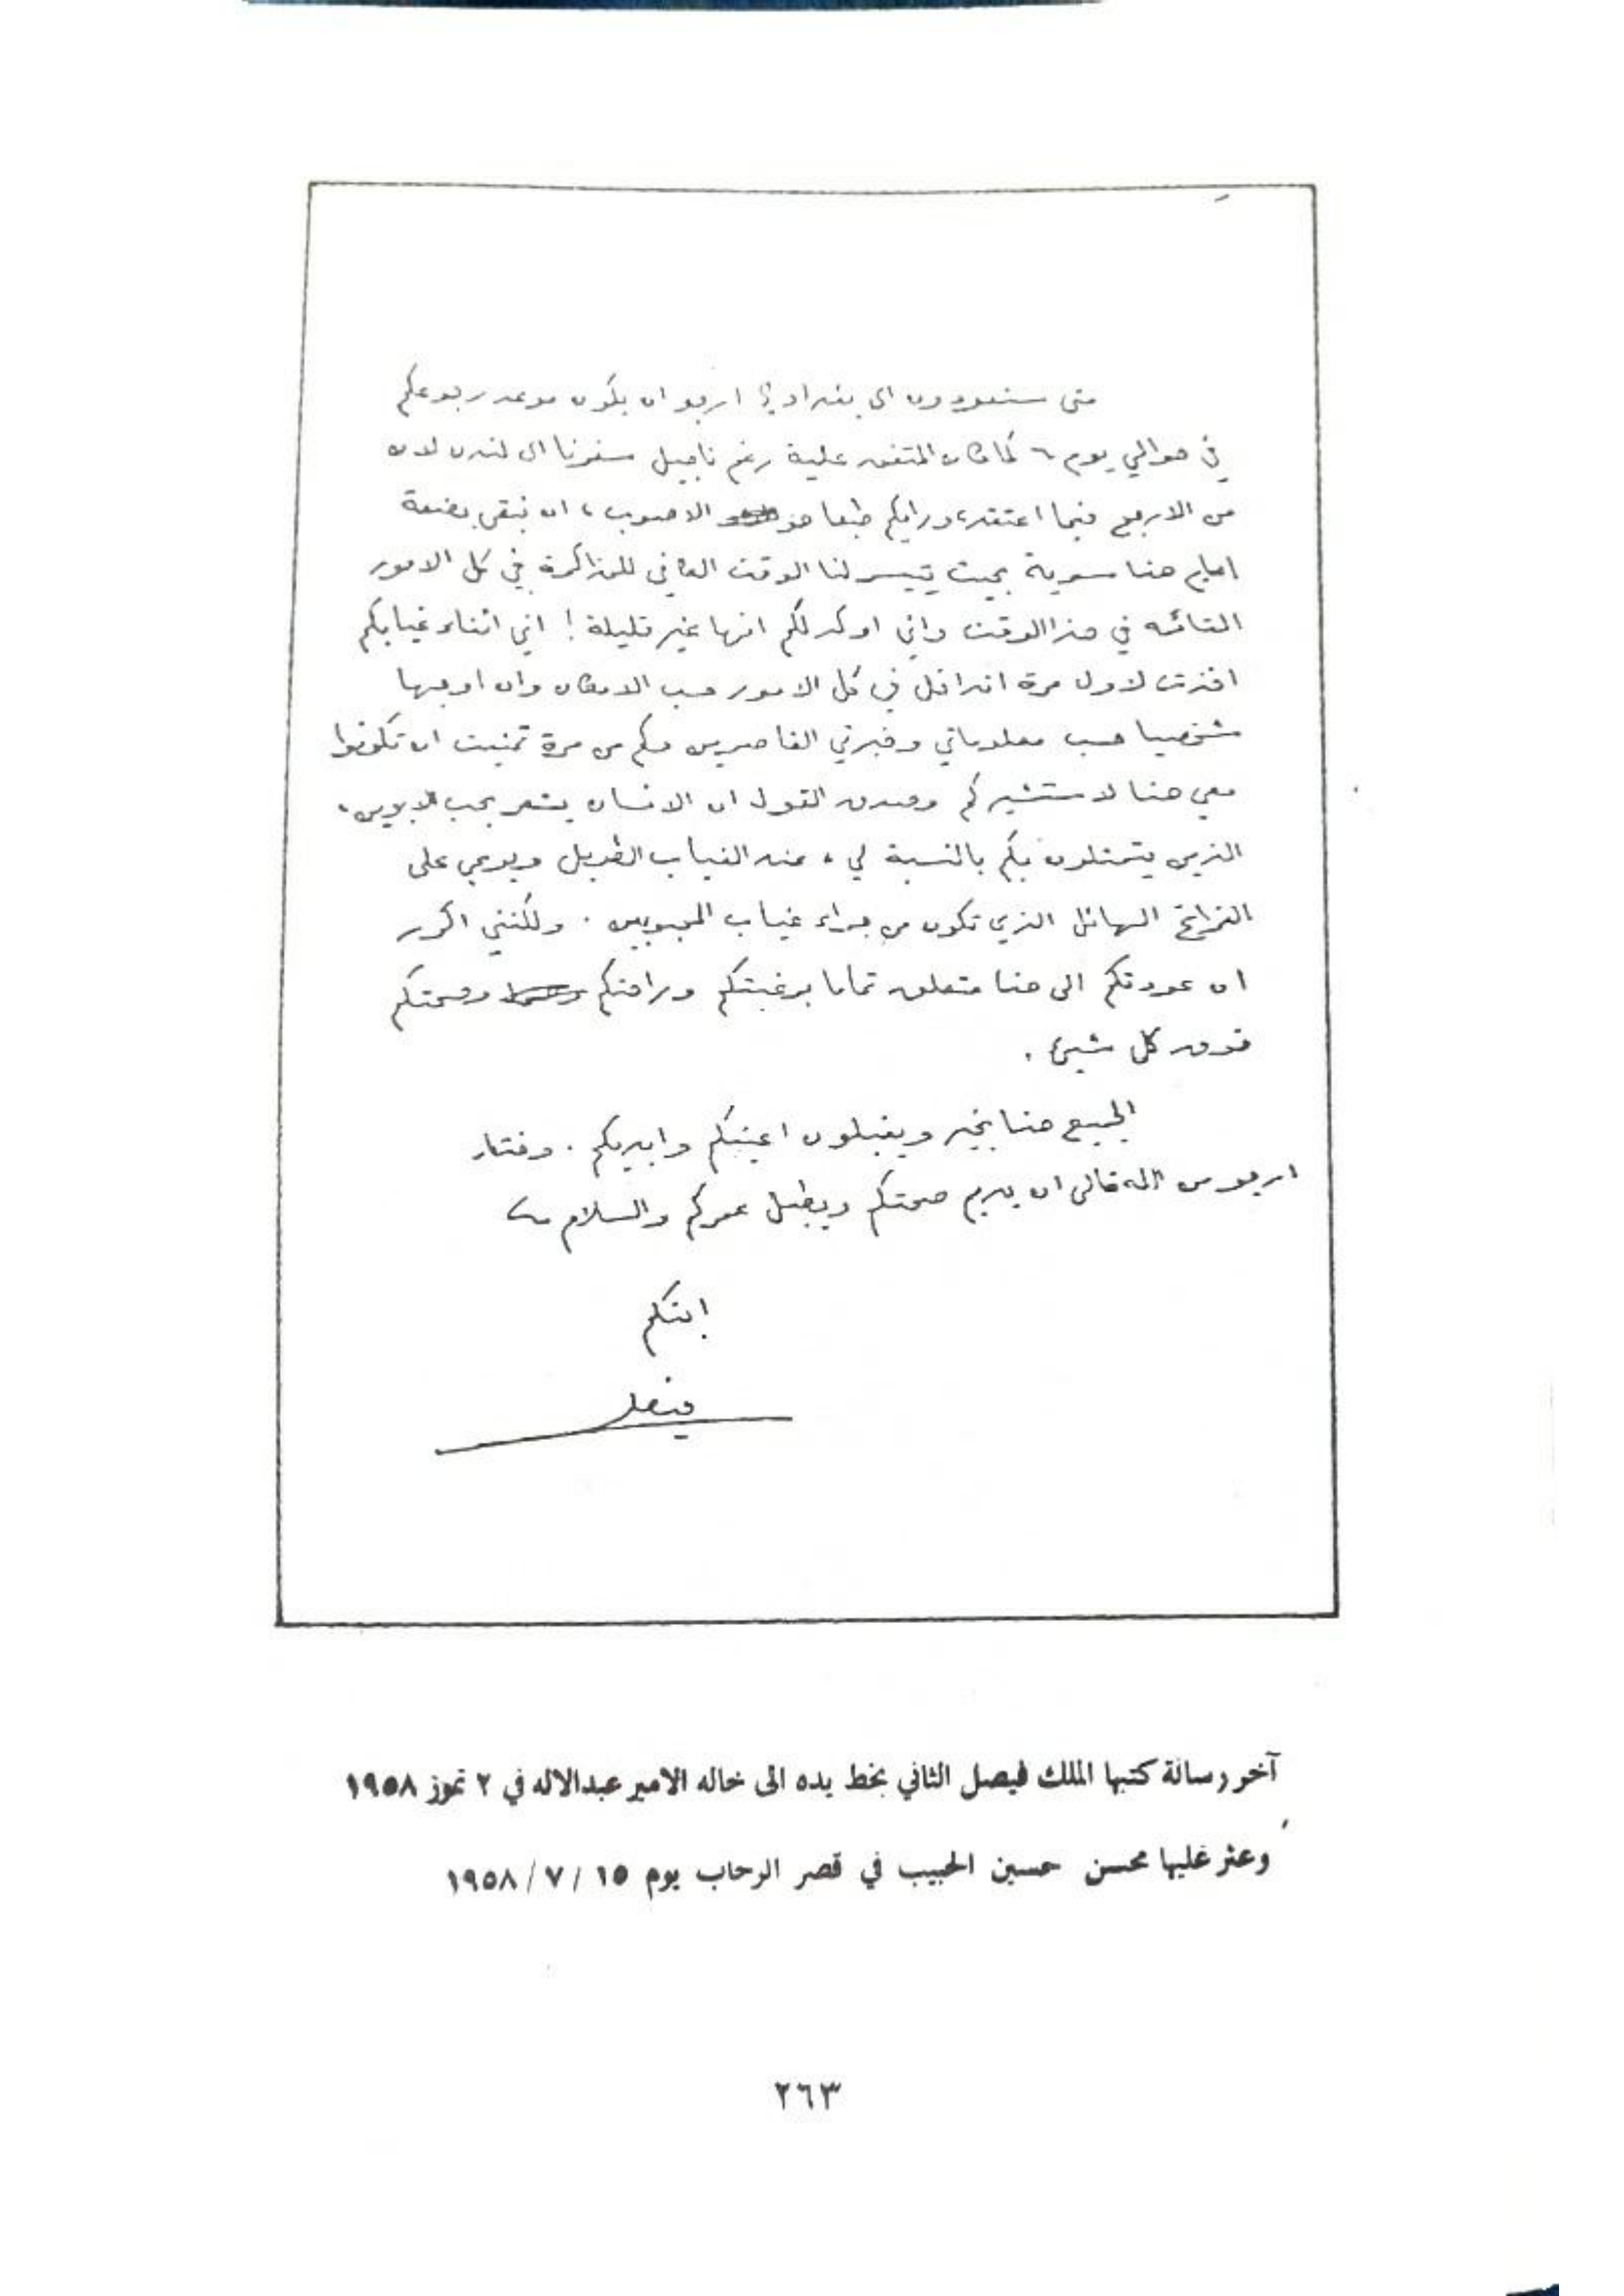 متى ستعودون الى بغداد ؟ ارجو ان يكون موعد رجوعكم
في حوالي يوم ٦ كما كان المتفق علية رغم تاجيل سفرنا الى لندن لان
من الارجح فيما اعتقد، ورايكم طبعا هو الاصوب، ان نبقى بضعة
ايام هنا سوية بحيث يتيسر لنا الوقت الكافي للمذاكرة في كل الامور
القائمه في هذا الوقت واني اوكد لكم انها غير قليلة ! اني اثناء غيابكم
اخذت لاول مرة اتداخل في كل الامور حسب الامكان وان اوجهها
شخصيا حسب معلوماتي وخبرتي القاصرين وكم من مرة تمنيت ان تكونوا
معي هنا لاستشيركم وصدق القول ان الانسان يشعر بحب الابوين،
الذين يتمثلون بكم بالنسبة لي، عند الغياب الطويل ويوعي على
الفراغ الهائل الذي تكون من جراء غياب المحبوبين . ولكنني اكرر
ان عودتكم الى هنا متعلق تماما برغبتكم وراحتكم وصحتكم
فوق كل شيئ .
الجميع هنا بخير ويقبلون اعينكم وايديكم . وختاما
ارجو من الله تعالى ان يديم صحتكم ويطيل عمركم والسلام
ابنكم
فيصل
آخر رسالة كتبها الملك فيصل الثاني بخط يده الى خاله الامير عبدالاله في ٢ تموز ١٩٥٨
وعثر عليها محسن حسين الحبيب في قصر الرحاب يوم ١٥ / ٧ / ١٩٥٨
٢٦٣